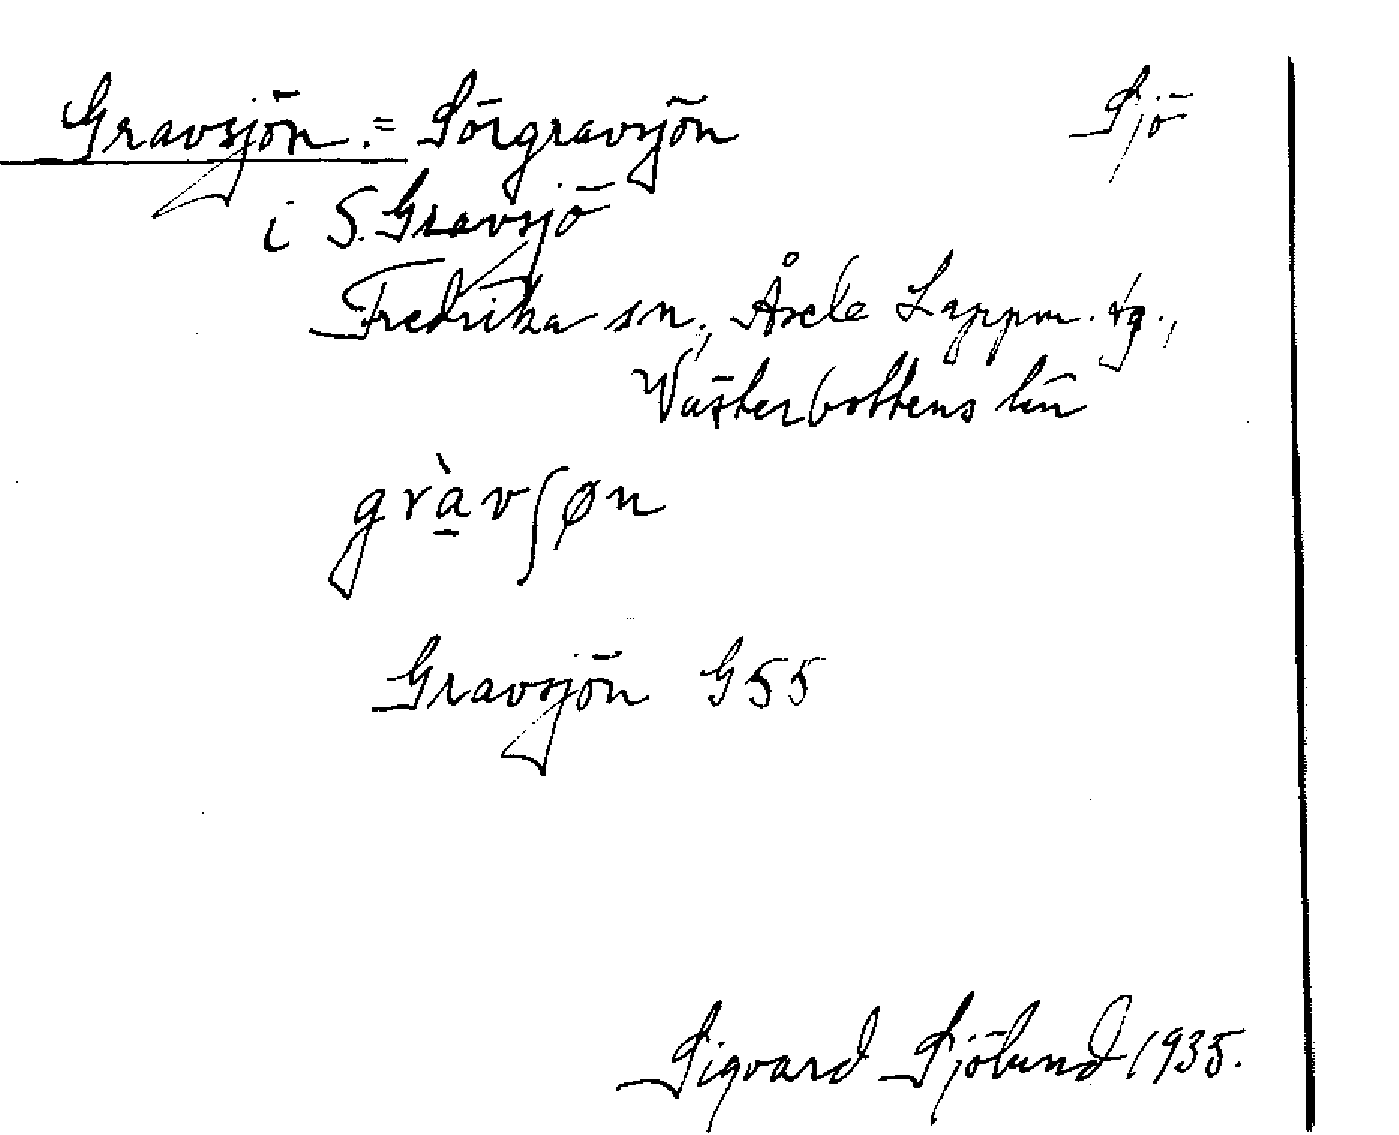 Gravsjön. = Sörgravsjön Sjö
i S. Gravsjö
Fredrika sn., Åsele Lappm. tg.,
Västerbottens län
gràvʃøn
Gravsjön G55
Sigvard Sjölund 1935.